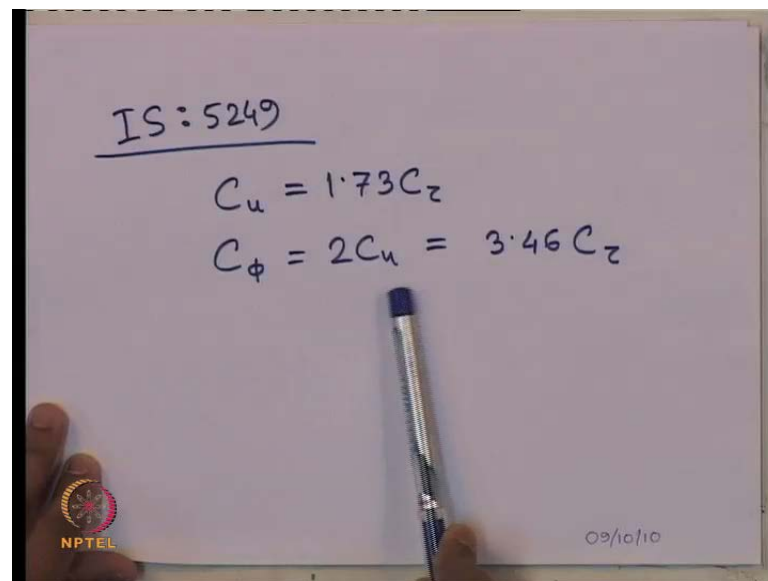 IS:5249
Cu = 1.73Cτ
Cφ = 2Cu = 3.46Cτ
NPTEL
09/10/10